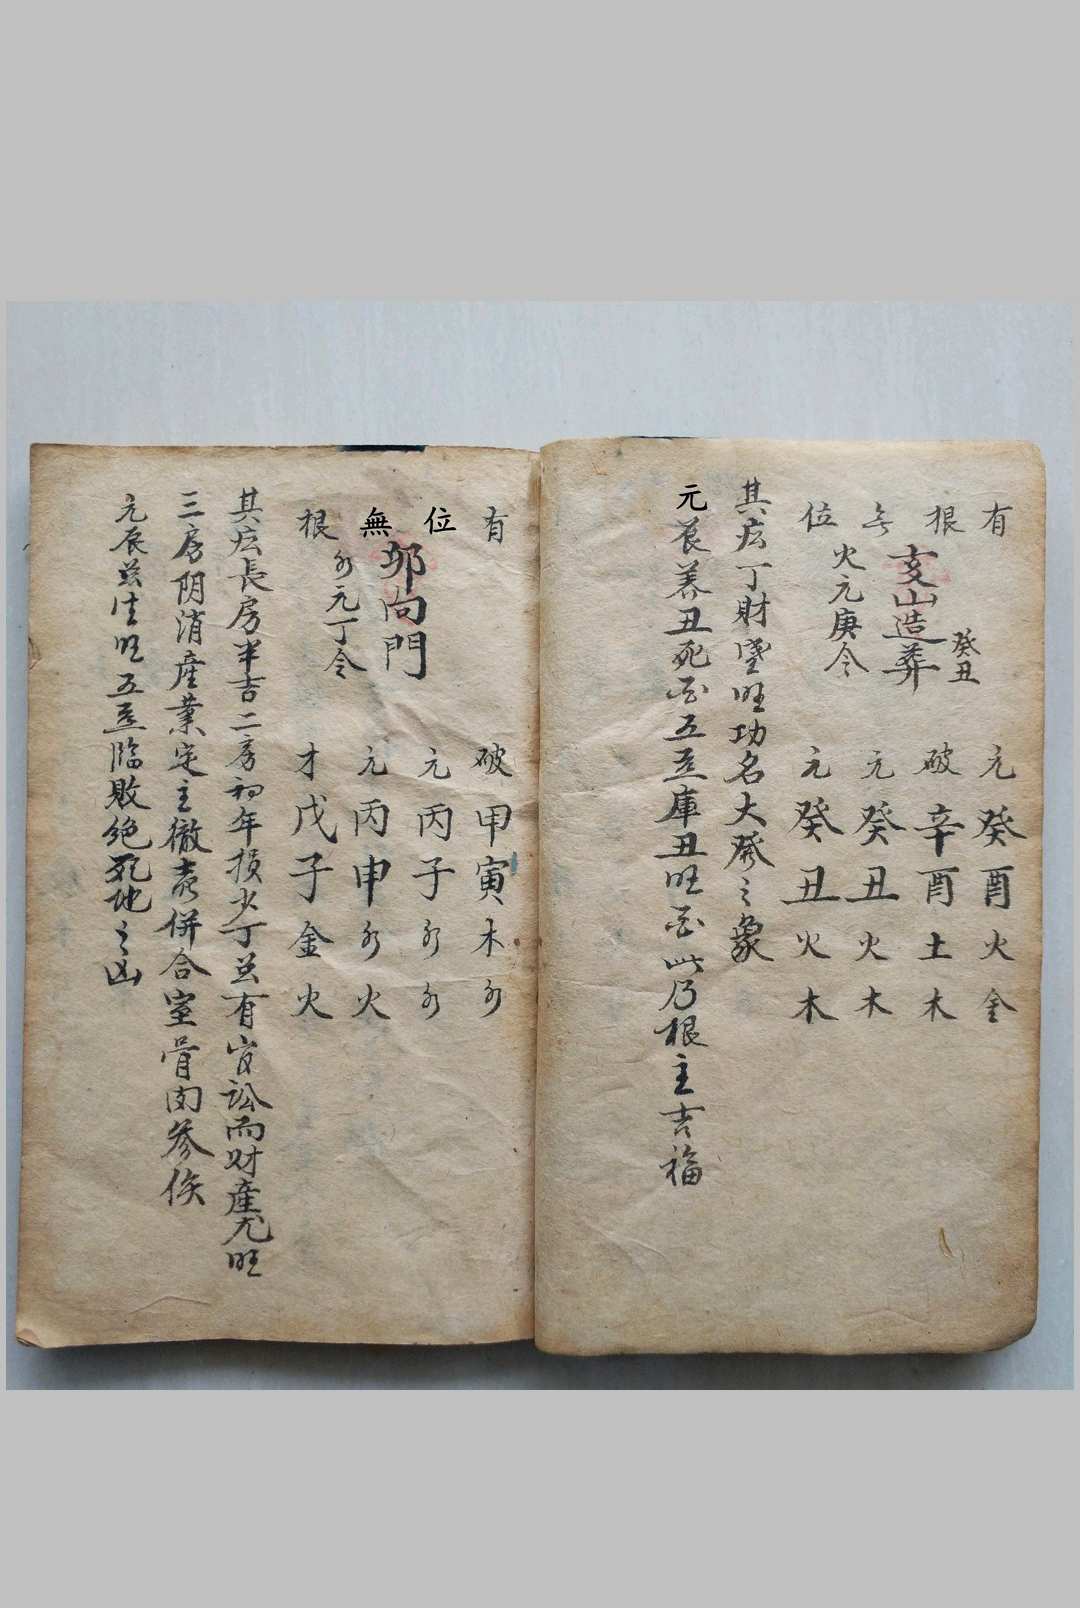 有 元癸酉火金
根 破辛酉土木
癸丑
山造葬
火元庚令
元癸丑火木
位 元癸丑火木
其坛丁財隆旺功名大發之象
元辰養丑死酉五五庫丑旺酉此乃根主吉福
有 破甲寅木水
位 元丙子水水
卯向門
無 元丙申水火
水元丁令
根 才戊子金火
其坛長房半吉二房初年損少丁並有官訟而財產尤旺
三房阴消產業定主徹衰併合室骨肉參俟
元辰並生旺五五臨敗絕死地之凶